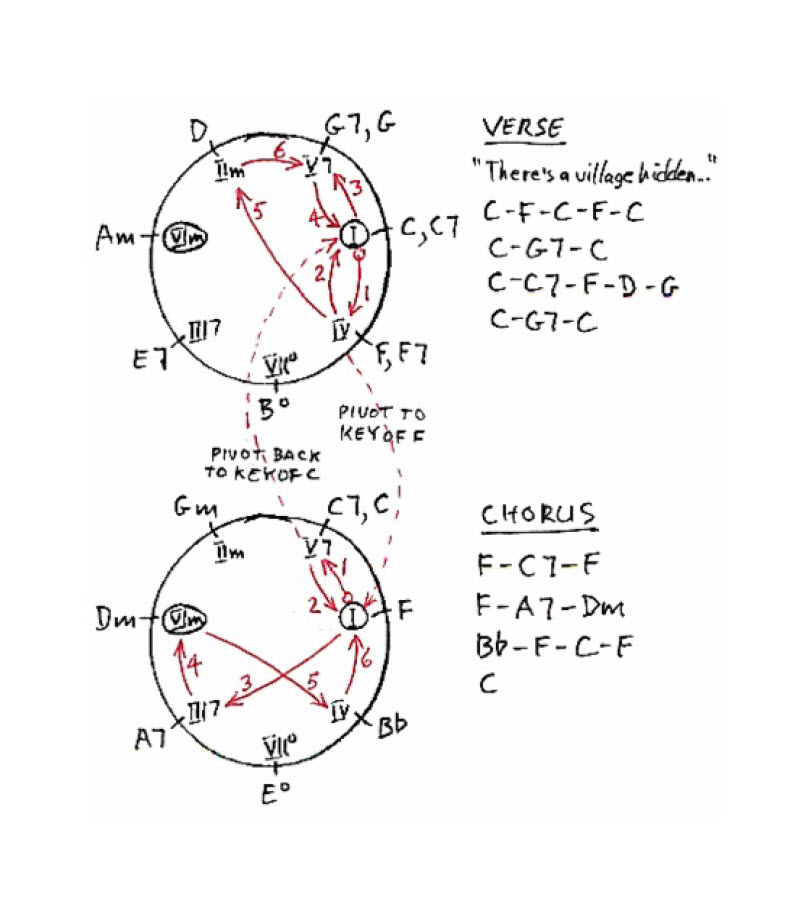 D
G7, G
IIm
6
V7
3
5
4
Am
VIm
I
C, C7
2
1
III7
IV
E7
VII°
F, F7
B°
PIVOT TO
KEY OF F
PIVOT BACK
TO KEY OF C
VERSE
"There's a village hidden..."
C-F-C-F-C
C-G7-C
C-C7-F-D-G
C-G7-C
Gm
C7, C
IIm
V7
1
2
Dm
VIm
I
F
4
3
5
6
III7
IV
A7
VII°
Bb
E°
CHORUS
F-C7-F
F-A7-Dm
Bb-F-C-F
C